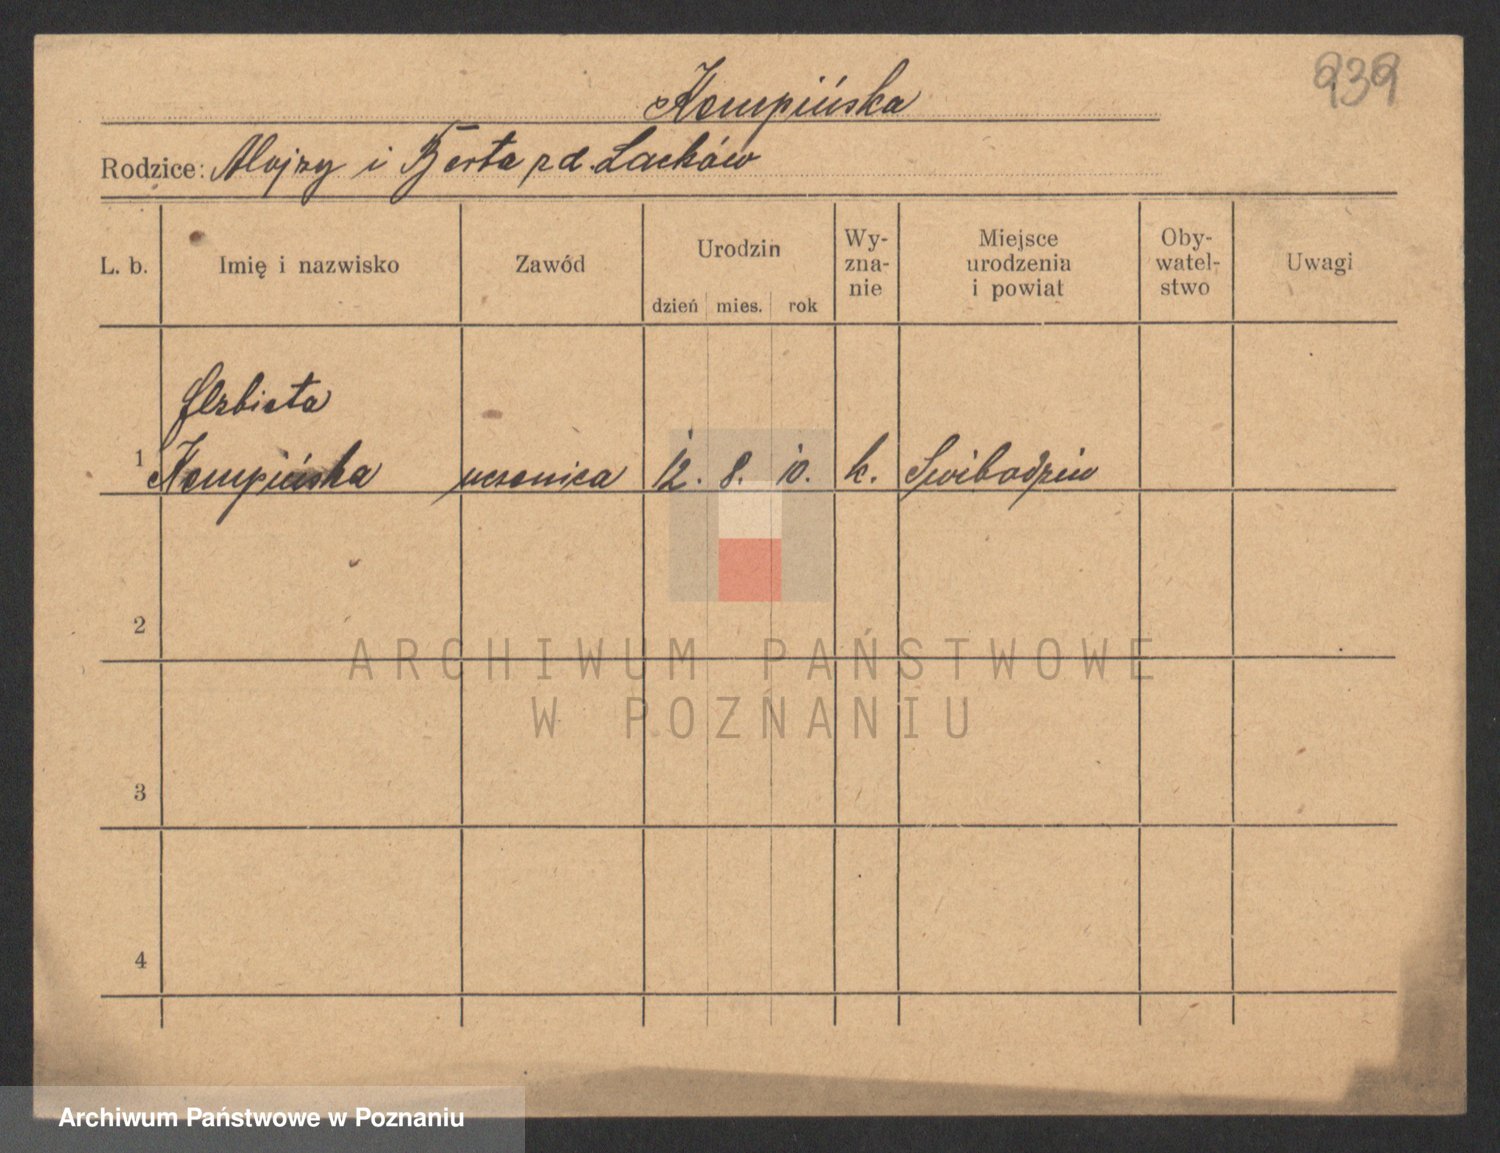 939
Kempińska
Rodzice: Alojzy i Berta zd. Lacków
L. b. Imię i nazwisko Zawód Urodzin dzień mies. rok Wy-zna-nie Miejsce urodzenia i powiat Oby-watel-stwo Uwagi
Elzbieta
1 Kempińska uczenica 12. 8. 10. k. Swibodzin
2
3
4
ARCHIWUM PAŃSTWOWE
W POZNANIU
Archiwum Państwowe w Poznaniu